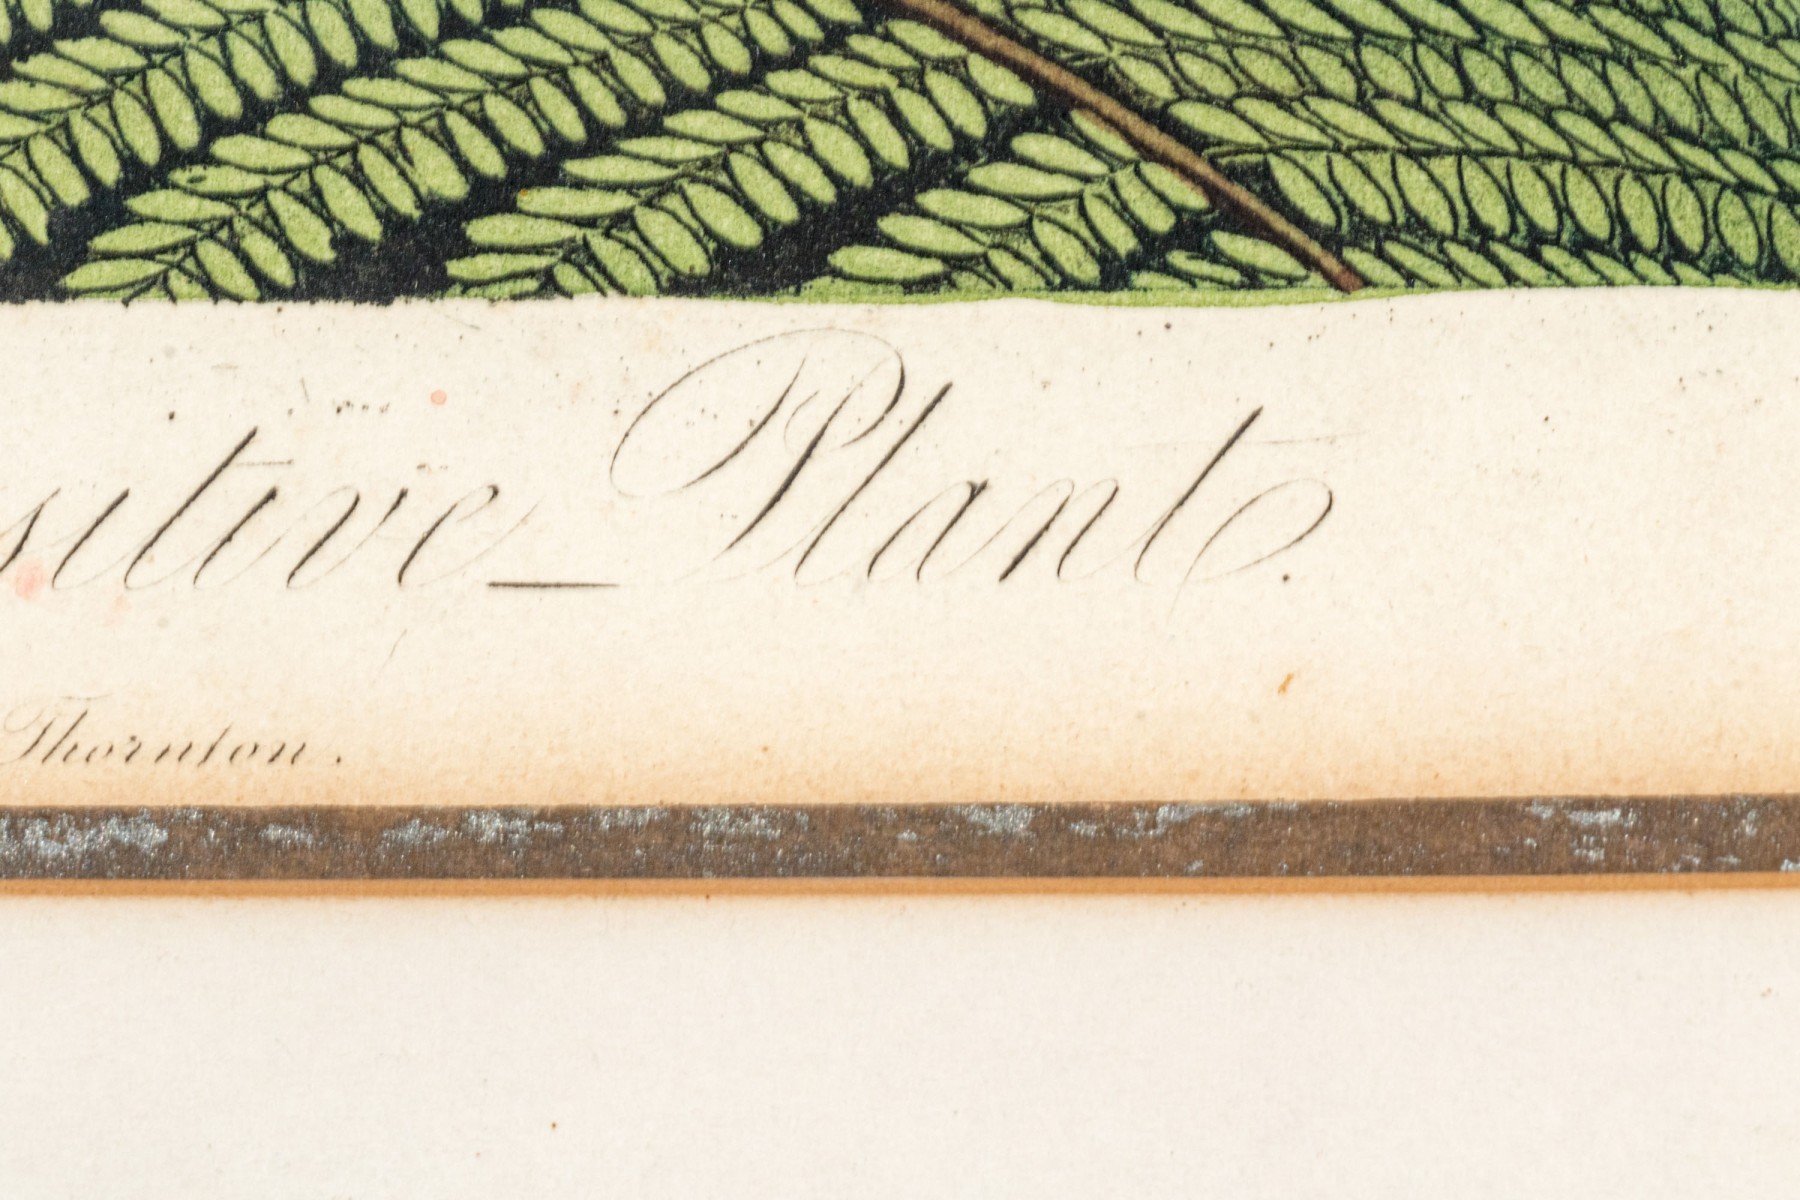 sitive_Plant.
Thornton.